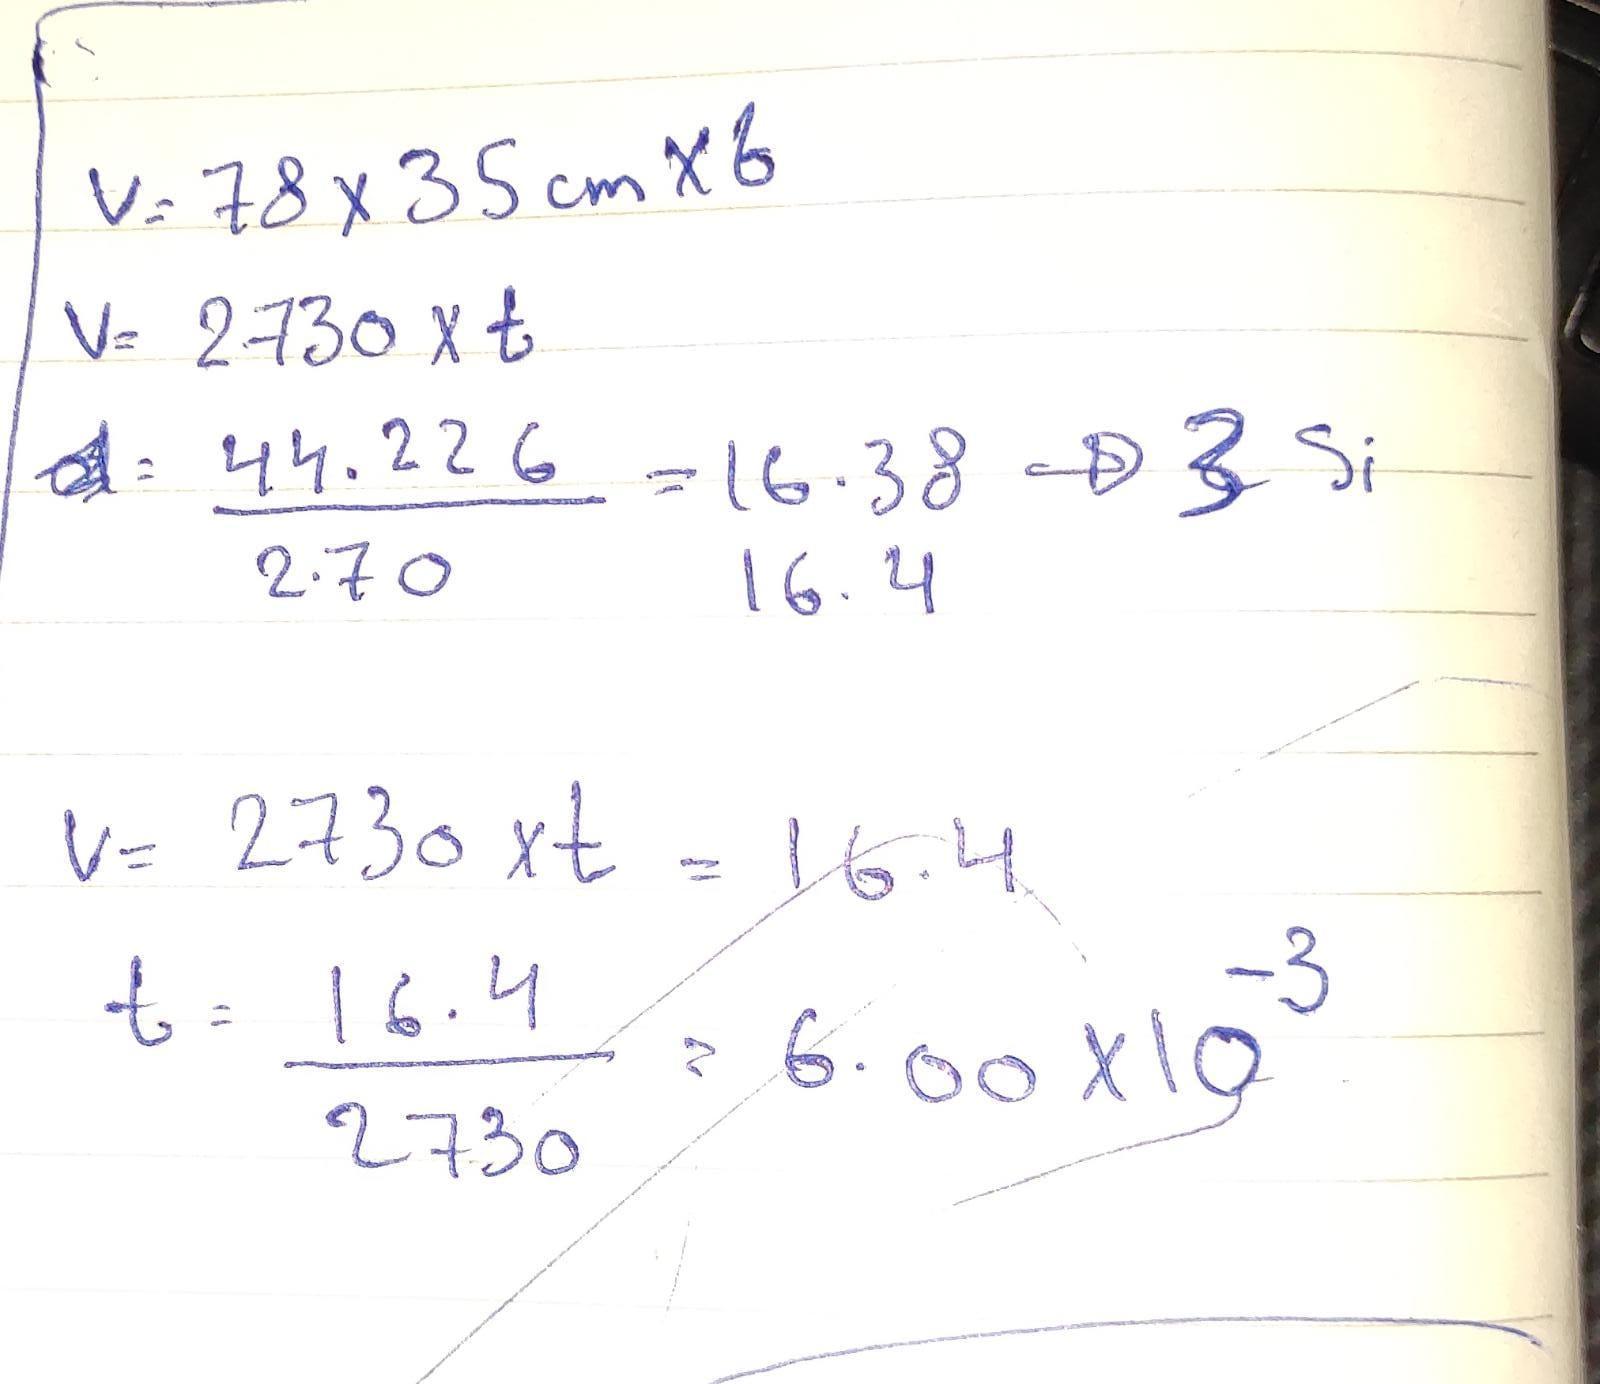 V= 78 x 35 cm x t
V= 2730 x t
d= 44.226 / 2.70 = 16.38 → 3 Si
16.4
V= 2730 x t = 16.4
t = 16.4 / 2730 = 6.00 x 10^-3